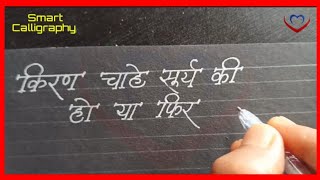 Smart
Calligraphy
किरण चाहे सूर्य की
हो या फिर